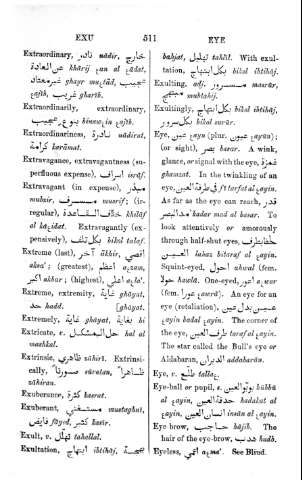 EXU 511 EYE
Extraordinary, نادر nádir, خارج
عن العادة khárij ạan al ạádat,
غير معتاد ghayr muạtád, عجيب
ạajíb, غريب gharíb.
Extraordinarily, extraordinary,
بنوع عجيب binouạin ạajíb.
Extraordinariness, نادرة nádirat,
كرامة karámat.
Extravagance, extravagantness (su-
perfluous expense), اسراف isráf.
Extravagant (in expense), مبذر
mubaẓir, مسرف musrif; (ir-
regular), خلاف القاعدة khiláf
al káạidat. Extravagantly (ex-
pensively), بكل تلف bikol talaf.
Extreme (last), آخر ákhir, اقصى
aksa'; (greatest), اعظم aạzam,
اكبر akbar; (highest), اعلى aạla'.
Extreme, extremity, غاية gháyat,
حد hadd.
Extremely, غاية gháyat, بغاية bi
gháyat.
Extricate, v. حل المشكل hal al
mashkal.
Extrinsic, ظاهري záhirí. Extrinsi-
cally, صورتاً súratan, ظاهراً
záhiran.
Exuberance, كثرة kasrat.
Exuberant, مستغني mustaghní,
فايض fáyaḍ, كثير kasír.
Exult, v. تهلل tahallal.
Exultation, ابتهاج ibtiháj, بهجة
bahjat, تهليل tahlíl. With exul-
tation, بكل ابتهاج bikol ibtiháj.
Exulting, adj. مسرور masrúr,
مبتهج mubtahij.
Exultingly, بكل ابتهاج bikol ibtiháj,
بكل سرور bikol surúr.
Eye, عين ạayn (plur. عيون ạayún);
(or sight), بصر basar. A wink,
glance, or signal with the eye, غمزة
ghamzat. In the twinkling of an
eye, في طرفة العين fí tarfat al ạayin.
As far as the eye can reach, قدر
مد البصر kadar mad al basar. To
look attentively or amorously
through half-shut eyes, لحظ بطرف
العين lahaz bitaraf al ạayin.
Squint-eyed, احول ahwal (fem.
حولا hawla. One-eyed, اعور aạwar
(fem. عورا ạawrá). An eye for an
eye (retaliation), عين بدل عين
ạayin badal ạayin. The corner of
the eye, طرف العين taraf al ạayin.
The star called the Bull's eye or
Aldabaran, الدبران addabarán.
Eye, v. تطلع tallaạ.
Eye-ball or pupil, s. بوبو العين búbbú
al ạayin, حدقة العين hadakat al
ạayin, انسان العين insán al ạayin.
Eye-brow, حاجب hájib. The
hair of the eye-brow, هدب hadb.
Eyeless, اعمى aạma'. See Blind.